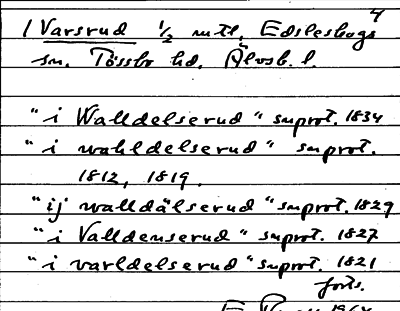 4
1 Varsrud 1/2 mtl, Edsleskogs
sn. Tössbo hd. Älvsb. l.
"i Walldelserud" smprot. 1834
"i wahldelserud" smprot.
1812, 1819.
"ij walldälserud" smprot. 1829
"i Valldenserud" smprot. 1827
"i varldelserud" smprot. 1821
forts.